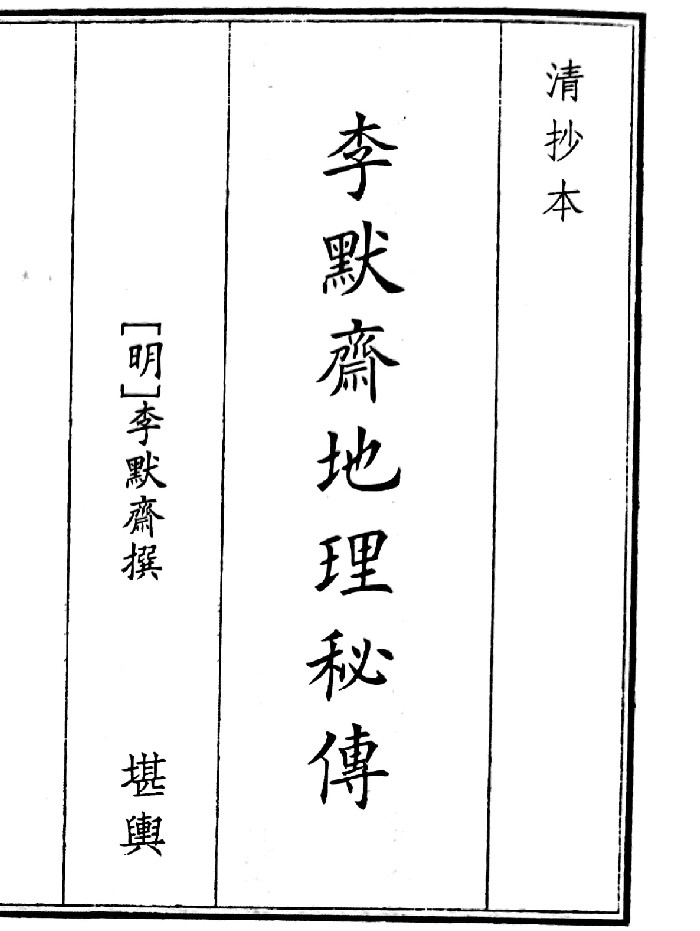 清抄本
李默齋地理秘傳
[明]李默齋撰
堪輿